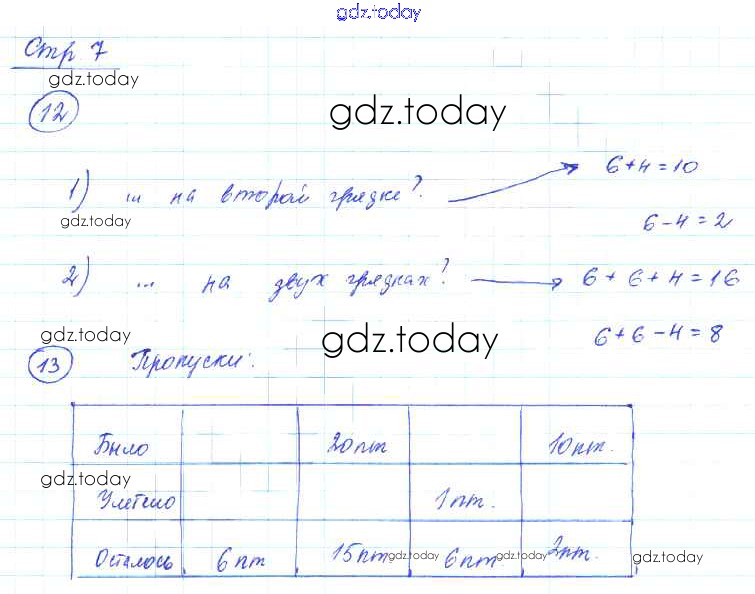 gdz.today
Стр 7
gdz.today
12
gdz.today
1) ... на второй грядке? 6+4=10
gdz.today
6-4=2
2) ... на двух грядках? 6+6+4=16
gdz.today
gdz.today
6+6-4=8
13 Пропуски:
Было 20пт 10пт.
gdz.today
Улетело 1пт.
Осталось 6пт 15пт gdz.today 6пт gdz.today 2пт. gdz.today